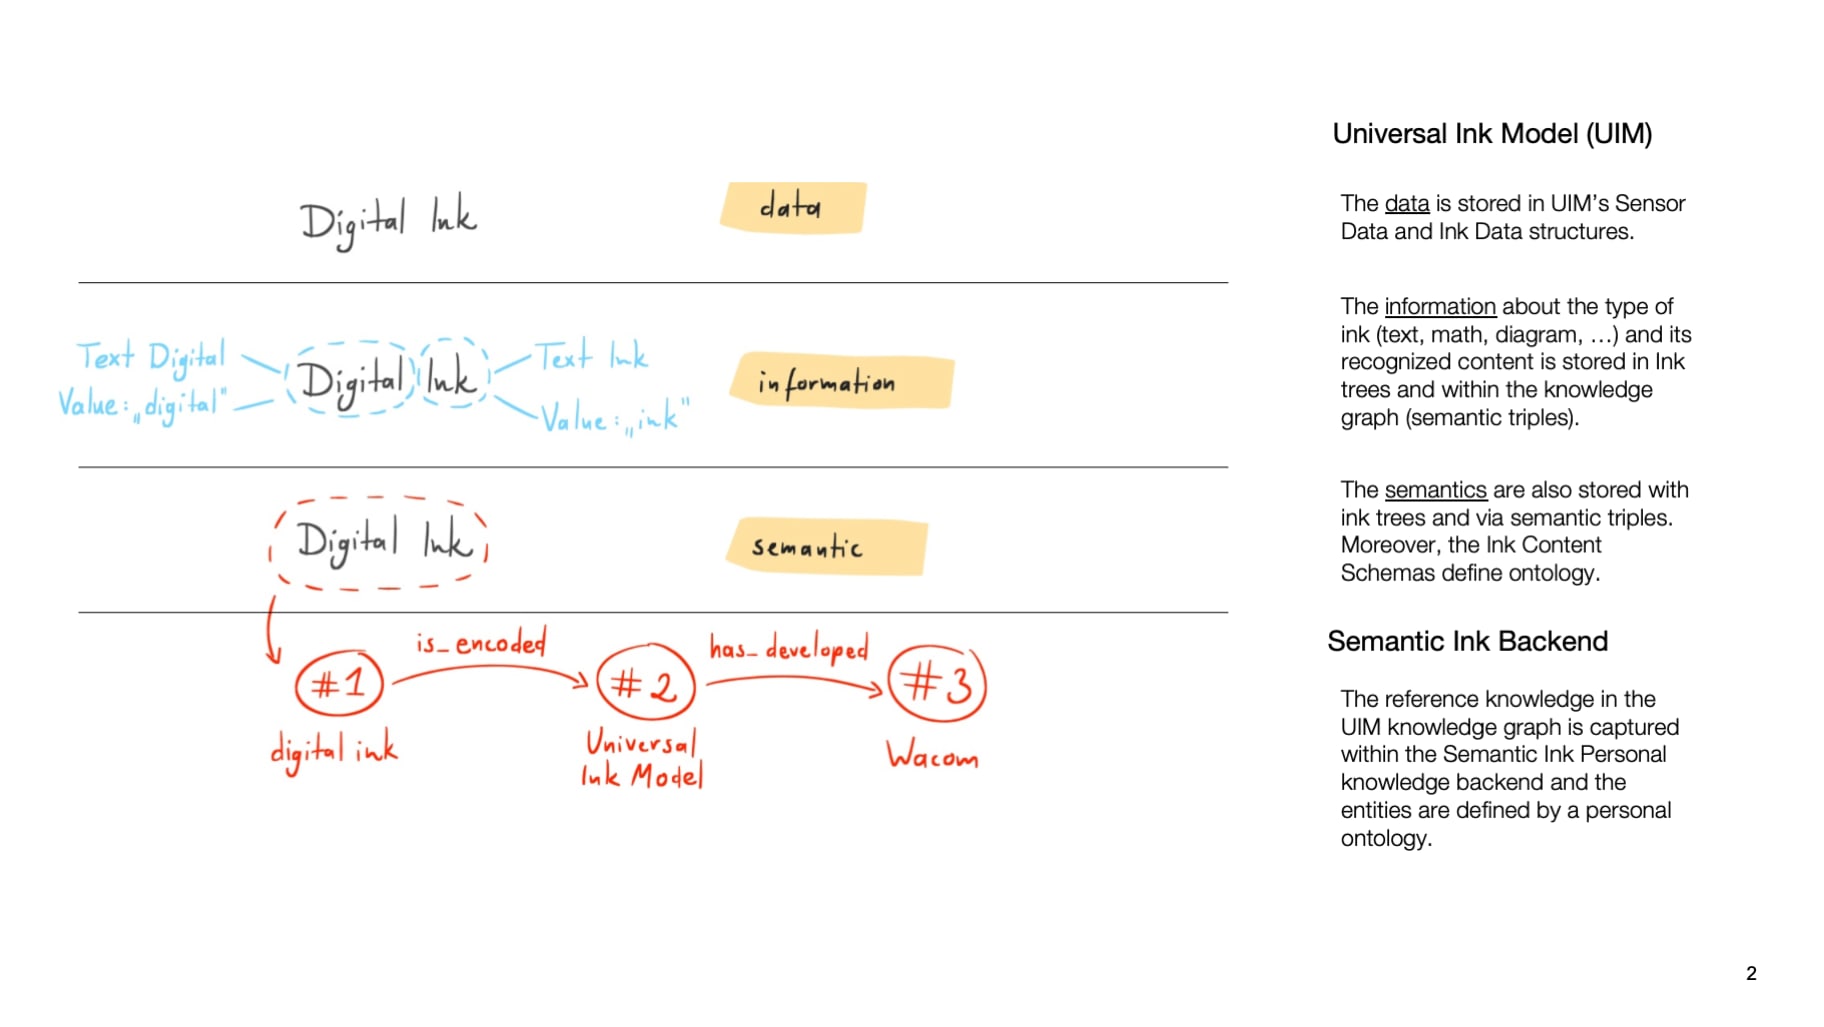 Digital Ink
data
Text Digital
Value: „digital"
Digital Ink
Text Ink
Value: „ink"
information
Digital Ink
semantic
is_encoded
has_developed
#1
#2
#3
digital ink
Universal
Ink Model
Wacom
Universal Ink Model (UIM)
The data is stored in UIM's Sensor
Data and Ink Data structures.
The information about the type of
ink (text, math, diagram, …) and its
recognized content is stored in Ink
trees and within the knowledge
graph (semantic triples).
The semantics are also stored with
ink trees and via semantic triples.
Moreover, the Ink Content
Schemas define ontology.
Semantic Ink Backend
The reference knowledge in the
UIM knowledge graph is captured
within the Semantic Ink Personal
knowledge backend and the
entities are defined by a personal
ontology.
2